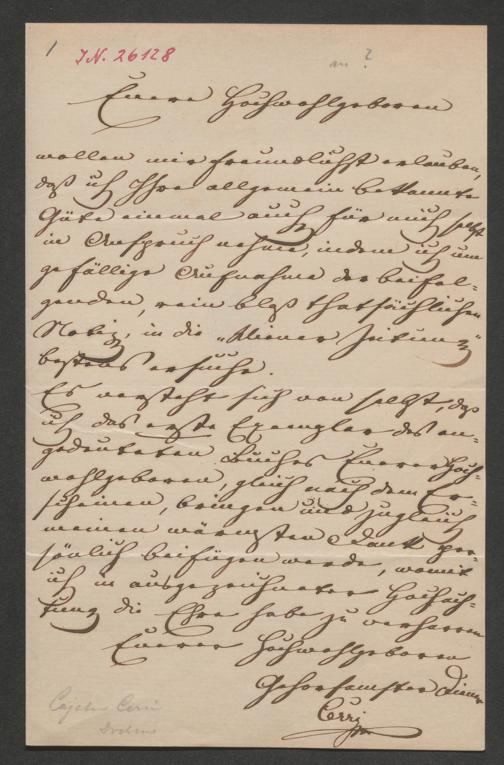 1
J.N. 26128
?
Euere Hochwohlgeboren
wollen mir freundlichst erlauben,
daß ich Ihre allgemein bekannte
Güte einmal auch für mich selbst
in Anspruch nehme, indem ich um
gefällige Aufnahme der beifol-
genden, rein blos thatsächlichen
Notiz, in die „Wiener Zeitung"
bestens ersuche.
Es versteht sich von selbst, daß
ich das erste Exemplar des an-
gedeuteten Buches Euerer Hoch-
wohlgeboren, gleich nach dem Er-
scheinen, bringen und zugleich
meinen wärmsten Dank per-
sönlich beifügen werde, womit
ich in ausgezeichneter Hochach-
tung die Ehre habe zu verharren
Euerer Hochwohlgeboren
Gehorsamster Diener
Cerri
Cajetan Cerri